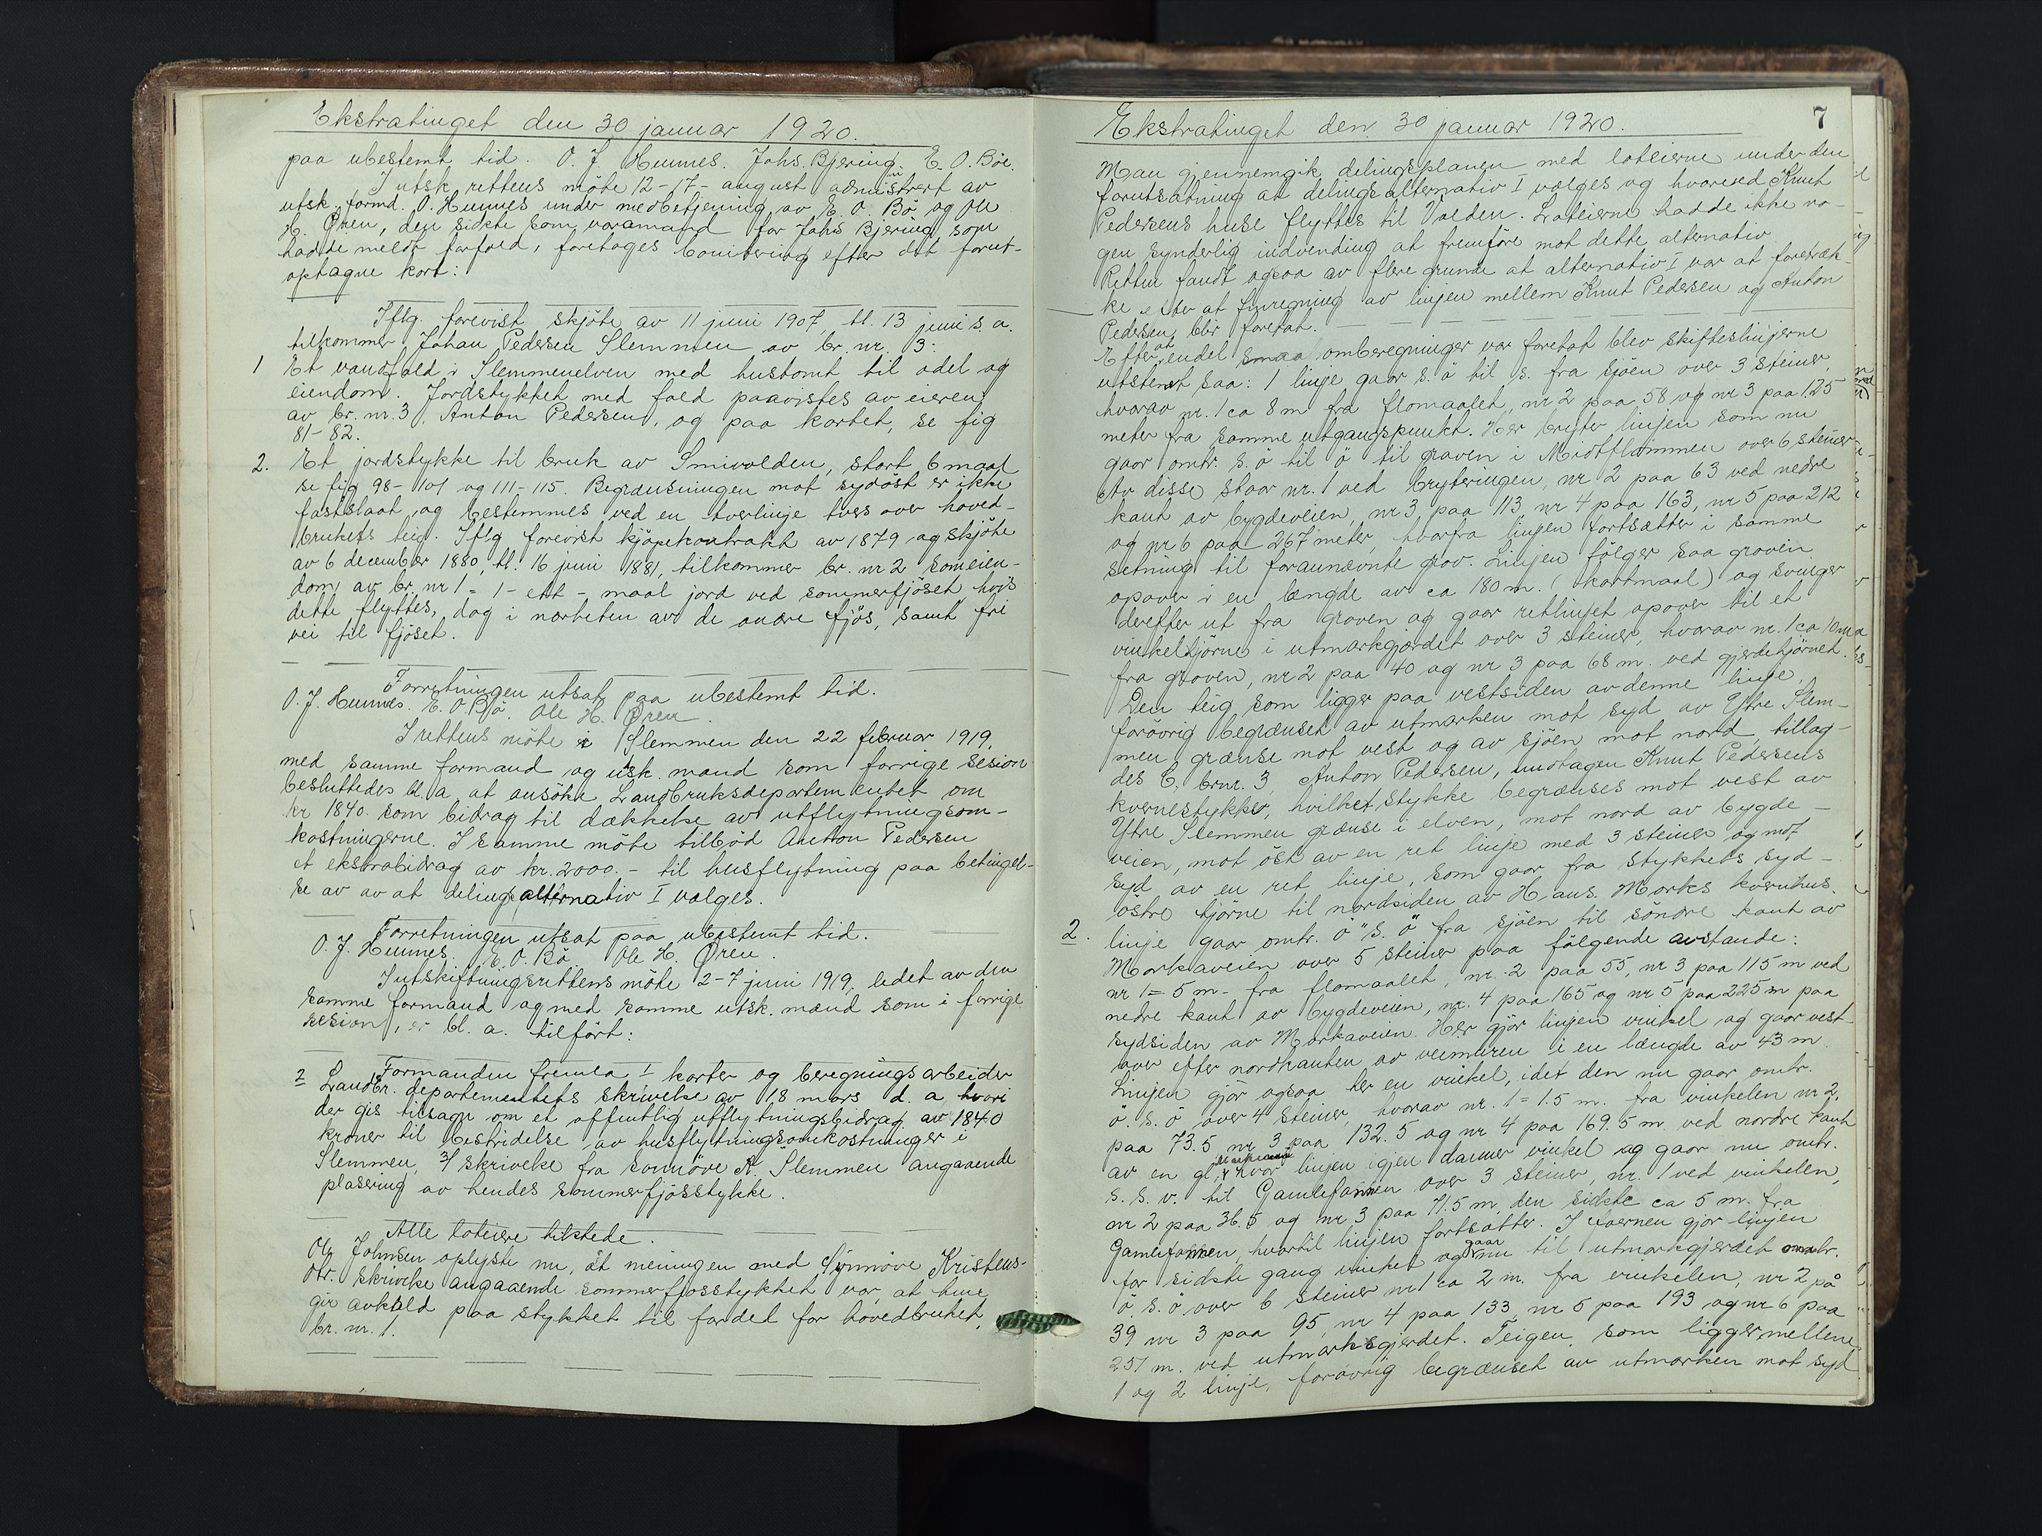 Ekstratinget den 30 januar 1920.
paa ubestemt tid. O. J. Hennes. Johs. Bjering. E. O. Böe.
I utsk. rettens möte 12-17- august administrert av
utsk. formd. O. Hennes under medbetjening av E. O. Bö og Ole
H. Øren, den sidste som varamand for Johs Bjering som
hadde meldt forfald, foretoges bonitering efter det forut-
optagne kart:
Iflg. forevist skjöte av 11 juni 1907 tl. 13 juni s. a.
tilkommer Johan Pedersen Slemmen av br. nr. 3:
1 Et vandfald i Slemmenelven med hustomt til odel og
eiendom. Jordstykket med fald paavistes av eieren
av br. nr. 3, Anton Pedersen, og paa kartet, se fig
81-82.
2. Et jordstykke til bruk av Smivolden, stort 6 maal
se fig 98-101 og 111-115. Begrænsningen mot sydost er ikke
fastslaat, og bestemmes ved en tverlinje tvers over hoved-
brukets teig. Iflg forevist kjöpekontrakt av 1879 og skjöte
av 6 december 1880, tl. 16 juni 1881, tilkommer br. nr 2 som eien-
dom av br. nr 1 = 1 - ett - maal jord ved sommerfjöset hvis
dette flyttes, dog i nærheten av de andre fjös, samt fri
vei til fjöset.
Forretningen utsat paa ubestemt tid.
O. J. Hennes. E. O Bö. Ole H. Øren.
I rettens möte i Slemmen den 22 februar 1919,
med samme formand og utsk. mænd som forrige sesion
besluttedes bl. a. at ansöke Landbruksdepartementet om
kr 1840. som bidrag til dækkelse av utflytningsom-
kostningerne. I samme möte tilböd Anton Pedersen
et ekstrabidrag av kr. 2000.- til husflytning paa betingel-
se av av at delingsalternativ I vælges.
Forretningen utsat paa ubestemt tid.
O. J. Hennes. E. O. Bö Ole H. Øren.
I utskiftningsrettens möte 2-7 juni 1919, ledet av den
samme formand og med samme utsk. mænd som i forrige
sesion, er bl. a. tilfört:
Formanden fremla 1 karter og beregningsarbeider
2 Landbr. departementets skrivelse av 18 mars d. a. hvori
der gis tilsagn om et offentlig utflytningsbidrag av 1840
kroner til bestridelse av husflytningsomkostninger i
Slemmen, 3/ skrivelse fra Sönnöve A. Slemmen angaaende
plasering av hendes sommerfjösstykke.
Alle loteiere tilstede.
Ole Johnsen oplyste nu, at meningen med Synnöve Kristens-
dtr. skrivelse angaaende sommerfjösstykket var, at hun
gir avkald paa stykket til fordel for hovedbruket,
br. nr. 1.
7
Ekstratinget den 30 januar 1920.
Man gjennemgik delingsplanen med loteierne under den
forutsætning at delingsalternativ I vælges og hvorved Knut
Pedersens huse flyttes til Volden. Loteierne hadde ikke no-
gen synderlig indvending at fremföre mot dette alternativ
Retten fandt ogsaa av flere grunde at alternativ I var at foretræk-
ke, efter at finregning av linjen mellem Knut Pedersen og Anton
Pedersen blir foretat.
Efter at endel smaa omberegninger var foretat blev skifteslinjerne
utstenet saa: 1 linje gaar s. ö til s. fra sjöen over 3 steiner,
hvorav nr. 1 ca 8 m fra flomaalet, nr 2 paa 58 og nr 3 paa 125
meter fra samme utgangspunkt. Her bryter linjen som nu
gaar omtr. s. ö til ö til graven i Midtflæmmen over 6 steiner
Av disse staar nr. 1 ved bryteringen, nr 2 paa 63 ved nedre
kant av bygdeveien, nr 3 paa 113, nr 4 paa 163, nr 5 paa 212
og nr 6 paa 267 meter, hvorfra linjen fortsætter i samme
retning til forannevnte grov. Linjen fölger saa groven
opover i en længde av ca 180 m. (kartmaal) og svinger
derefter ut fra groven og gaar retlinjet opover til et
vinkelhjörne i utmarkgjærdet over 3 steiner, hvorav nr. 1 ca 10 m
fra groven, nr 2 paa 40 og nr 3 paa 68 m. ved gjerdehjörnet.
Den teig som ligger paa vestsiden av denne linje,
forövrig begrænset av utmarken mot syd av Ytre Slem-
men grænse mot vest og av sjöen mot nord, tillag-
des C. brnr. 3, Anton Pedersen, undtagen Knut Pedersens
kvernestykke, hvilket stykke begrænses mot vest av
Ytre Slemmen grænse i elven, mot nord av bygde-
veien, mot öst av en ret linje med 3 steiner og mot
syd av en ret linje, som gaar fra stykkets syd-
östre hjörne til nordsiden av Hans Morkes kvernhus.
2. linje gaar omtr. ö "s. ö" fra sjöen til söndre kant av
Morkaveien over 5 steiner paa fölgende avstande:
nr 1 = 5 m - fra flomaalet, nr. 2 paa 55, nr 3 paa 115 m ved
nedre kant av bygdeveien, nr. 4 paa 165 og nr 5 paa 225 m paa
sydsiden av Morkaveien. Her gjör linjen vinkel og gaar vest-
over efter nordkanten av veimuren i en længde av 43 m.
Linjen gjör ogsaa her en vinkel, idet den nu gaar omtr.
ö. s. ö over 4 steiner, hvorav nr. 1 = 1.5 m. fra vinkelen nr 2.
paa 73.5 nr 3 paa 132.5 og nr 4 paa 169.5 m ved nordre kant
av en gl. hvor linjen igjen danner vinkel og gaar nu omtr.
s. s. v. til Gamlefonnen over 3 steiner, nr. 1 ved vinkelen,
nr 2 paa 36.5 og nr 3 paa 71.5 m, den sidste ca 5 m. fra
Gamlefonnen, hvortil linjen fortsætter. I fonnen gjör linjen
for sidste gang vinkel og gaar nu til utmarkgjerdet omtr.
ö. s. ö over 6 steiner nr 1 ca 2 m. fra vinkelen, nr 2 på
39 nr 3 paa 95, nr 4 paa 133, nr 5 paa 193 og nr 6 paa
251 m. ved utmarksgjerdet. Teigen som ligger mellem
1 og 2 linje, forövrig begrænset av utmarken mot syd